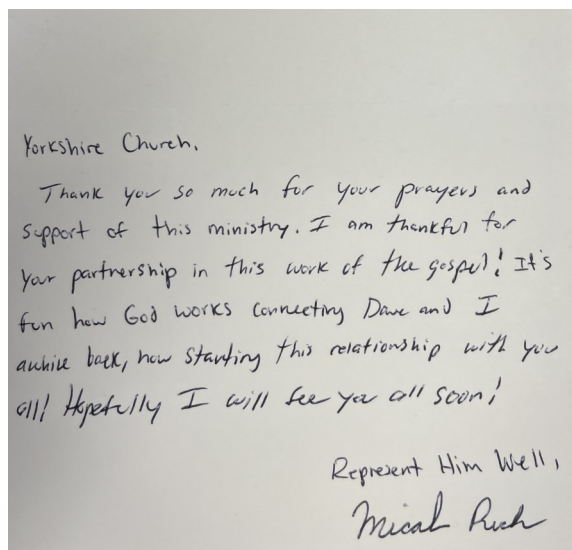 Yorkshire Church,
Thank you so much for your prayers and
support of this ministry. I am thankful for
your partnership in this work of the gospel! It's
fun how God works connecting Dave and I
awhile back, now starting this relationship with you
all! Hopefully I will see you all soon!
Represent Him Well,
Micah